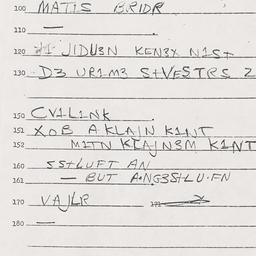 100 MATIS BRIDR
110 —
120 JIDU3N KEN3X N1S+
130 D3 UR1M3 S+VESTRS 2
150 CV1L1NK
151 XOB AKLAIN K1NT
152 M1TN KLAJN3M K1NT
160 SS+LUFT AN
161 — BUT A·NG3S+LU·FN
170 VAJLR 171
180 —